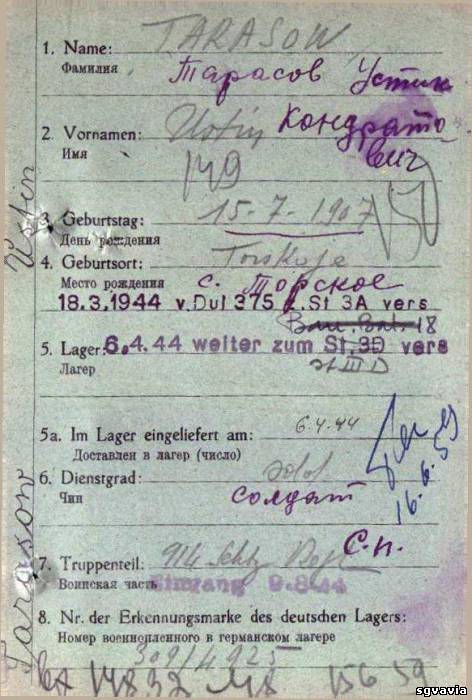 1. Name: TARASOW
Фамилия Тарасов Устин
2. Vornamen: Ustin Кондрато
Имя вич
149
150
3. Geburtstag: 15-7-1907
День рождения
4. Geburtsort: Torskoje
Место рождения с. Торское
18.3.1944 v. Dul 375 z. St 3A vers
Bau. Bat. 18
5. Lager: 6.4.44 weiter zum St. 3D vers
Лагер St III D
5a. Im Lager eingeliefert am: 6.4.44
Доставлен в лагер (число)
6. Dienstgrad: Sold.
Чин солдат
16.6.59
7. Truppenteil: 914
Воинская часть Eingang 9-8-44
С.п.
8. Nr. der Erkennungsmarke des deutschen Lagers:
Номер военнопленного в германском лагере
309/
Tarasow Ustin
sgvavia